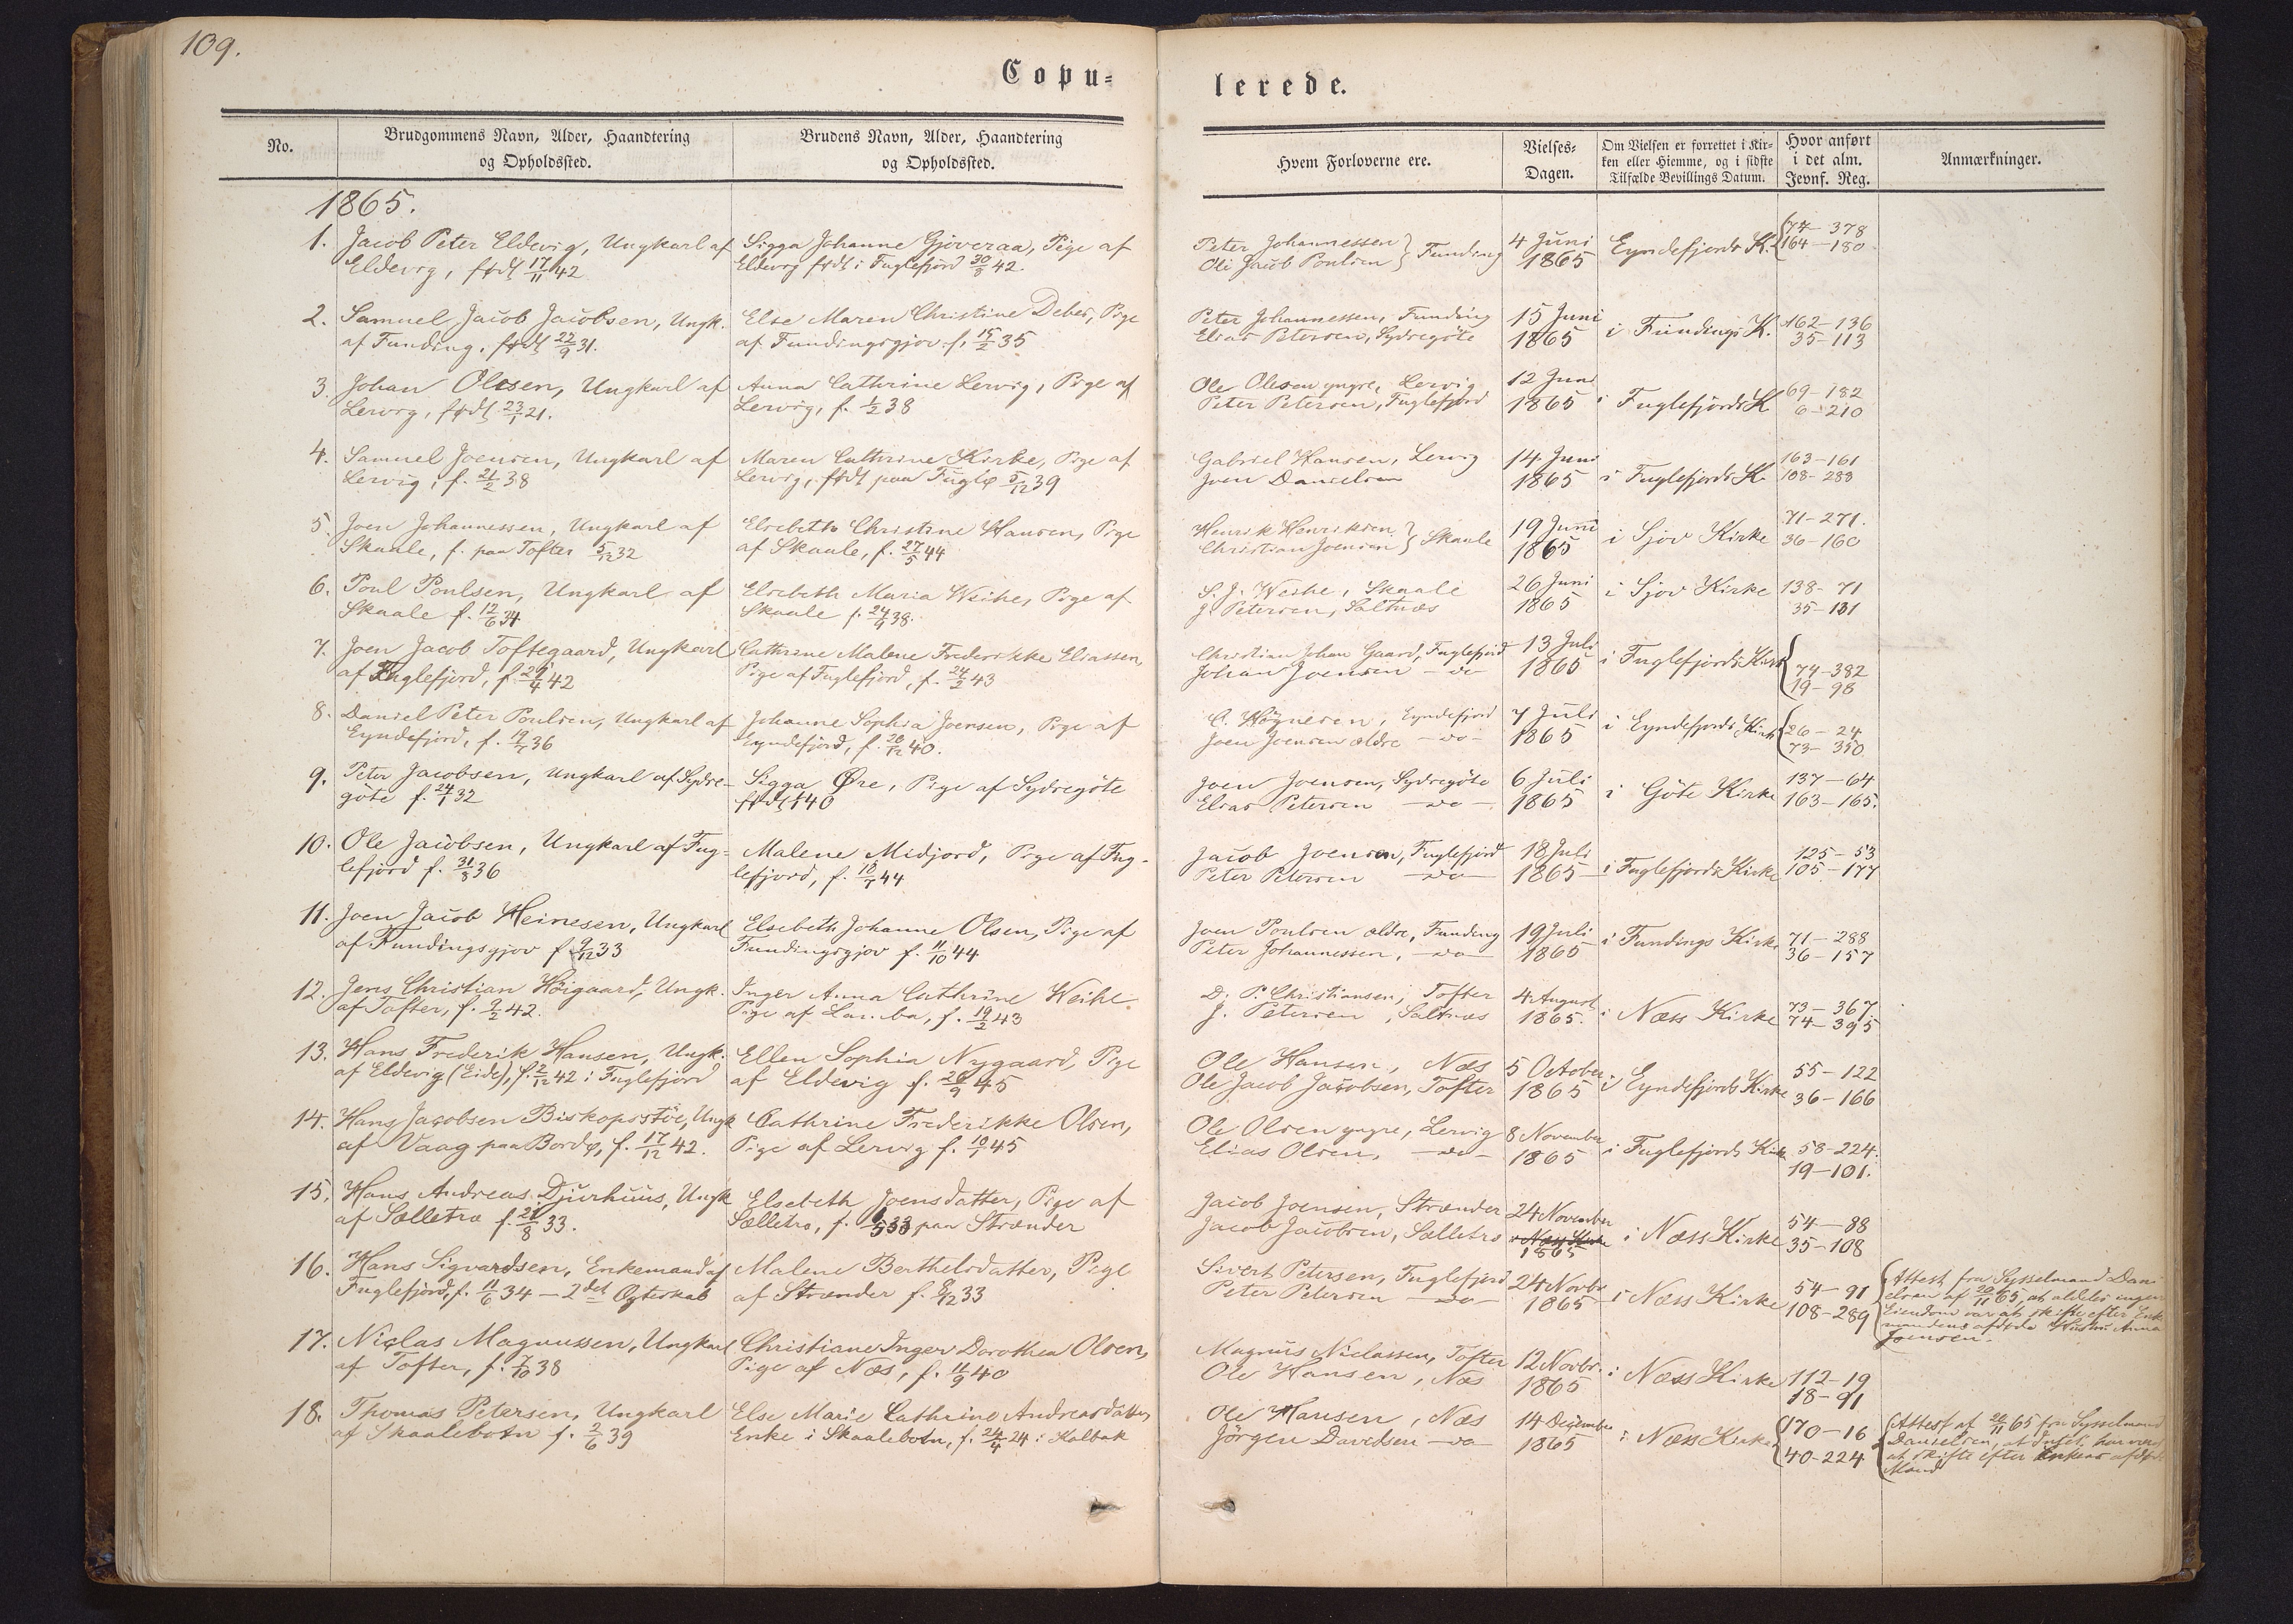 109.
Copu-
lerede.
No.
Brudgommens Navn, Alder, Haandtering
og Opholdssted.
Brudens Navn, Alder, Haandtering
og Opholdssted.
Hvem Forloverne ere.
Vielses-
Dagen.
Om Vielsen er forrettet i Kir-
ken eller Hiemme, og i sidste
Tilfælde Bevillings Datum.
Hvor anført
i det alm.
Jevnf. Reg.
Anmærkninger.
1865.
1. Jacob Peter Eldevig, Ungkarl af
Eldevig, født 17/11 42
Sigga Johanne Gjøveraa, Pige af
Eldevig født i Fuglefjörd 30/8 42.
Peter Johannessen } Funding
Oli Jacob Poulsen
4 Juni
1865
Eyndefjords K.
77-378
164-180
2. Samuel Jacob Jacobsen, Ungk.
af Funding, født 22/9 31.
Else Maren Christine Debes, Pige
af Fundingsgjov. f. 15/2 35
Peter Johannessen, Funding
Elias Petersen, Sydregöte
15 Juni
1865
i Fundings K.
162-136
35-113
3. Johan Olesen, Ungkarl af
Lervig, født 23/1 21.
Anna Cathrine Lervig, Pige af
Lervig, f. 1/2 38
Ole Olesen yngre, Lervig
Peter Petersen, Fuglefjord
12 Juni
1865
i Fuglefjords K
69-182
6-210
4. Samuel Joensen, Ungkarl af
Lervig, f. 21/2 38
Maren Cathrine Kirke, Pige af
Lervig, født paa Fuglø 5/12 39
Gabriel Hansen, Lervig
Joen Danielsen
14 Juni
1865
i Fuglefjords K.
163-161
108-288
5. Joen Johannessen, Ungkarl af
Skaale, f. paa Tofter 5/12 32
Elsebeth Christine Hansen, Pige
af Skaale, f. 27/5 44
Henrik Henriksen } Skaale
Christian Joensen
19 Juni
1865
i Sjov Kirke
71-271.
36-160
6. Poul Poulsen, Ungkarl af
Skaale f. 12/6 34
Elsebeth Maria Weihe, Pige af
Skaale f. 24/9 38.
S. J. Weihe, Skaale
J. Petersen, Saltnæs
26 Juni
1865
i Sjov Kirke
138-71
35-131
7. Joen Jacob Toftegaard, Ungkarl
af Fuglefjord, f. 29/4 42
Cathrine Malene Frederikke Eliassen,
Pige af Fuglefjord, f. 24/2 43
Christian Johan Gaard, Fuglefjord
Johan Joensen - do -
13 Juli
1865
i Fuglefjords Kirke
74-382
19-98
8. Daniel Peter Poulsen, Ungkarl af
Eyndefjörd, f. 19/7 36
Johanne Sophia Joensen, Pige af
Eyndefjörd, f. 28/12 40.
O. Högnesen, Eyndefjord
Joen Joensen ældre - do -
7 Juli
1865
i Eyndefjords Kirke
26-24
73-350
9. Peter Jacobsen, Ungkarl af Sydre-
göte f. 24/1 32
Sigga Øre, Pige af Sydregöte
Joen Joensen, Sydregöte
Elias Petersen - do -
6 Juli
1865
i Göte Kirke
137-64
163-165.
10. Ole Jacobsen, Ungkarl af Fug-
lefjord f. 31/8 36
Malene Midjord, Pige af Fug-
lefjord, f. 18/7 44
Jacob Joensen, Fuglefjord
Peter Petersen - do -
18 Juli
1865
i Fuglefjords Kirke
125-53
105-177
11. Joen Jacob Heinesen, Ungkarl
af Fundingsgjov f. 9/12 33
Elsebeth Johanne Olsen, Pige af
Fundingsgjov f. 11/10 44
Joen Poulsen ældre, Funding
Peter Johannessen, - do -
19 Juli
1865
i Fundings Kirke
71-288
36-157
12. Jens Christian Höigaard, Ungk.
af Tofter, f. 7/2 42.
Inger Anna Cathrine Weihe
Pige af Lamba, f. 19/2 43
D. P. Christiansen, Tofter
J. Petersen, Saltnæs
4 August
1865.
i Næss Kirke
73-367
74-395
13. Hans Frederik Hansen, Ungk.
af Eldevig (Eide), f. 2/12 42 i Fuglefjörd
Ellen Sophia Nygaard, Pige
af Eldevig f. 26/9 45
Ole Hansen, Næs
Ole Jacob Jacobsen, Tofter
5 October
1865
i Eyndefjords Kirke
55-122
36-166
14. Hans Jacobsen Biskopsstöe, Ungk
af Vaag paa Bordø, f. 17/12 42.
Cathrine Frederikke Olsen,
Pige af Lervig f. 10/1 45
Ole Olsen yngre, Lervig
Elias Olsen, - do -
8 November
1865
i Fuglefjords Kirke
58-224.
19-101.
15. Hans Andreas Djurhuus, Ungk
af Sælletræ f. 21/8 33.
Elsebeth Joensdatter, Pige af
Sælletræ, f. 5 33 paa Strænder
Jacob Joensen, Strænder
Jacob Jacobsen, Sælletræ
24 November
1865
i Næss Kirke
54-88
35-108
16. Hans Sigvardsen, Enkemand af
Fuglefjord, f. 11/6 34 - 2det Ægteskab
Malene Berthelsdatter, Pige
af Strænder f. 8/12 33
Sivert Petersen, Fuglefjord
Peter Petersen - do -
24 Novbr
1865
i Næss Kirke
54-91
108-289
Attest fra Sysselmand Dani
elsen af 20/11 65, at aldeles ingen
Eiendom var at skifte efter Enke
mandens afdøde Hustru Anna
Joensen.
17. Niclas Magnussen, Ungkarl
af Tofter, f. 7/10 38
Christiane Inger Dorothea Olsen,
Pige af Næs, f. 11/9 40
Magnus Niclassen, Tofter
Ole Hansen, Næs
12 Novbr.
1865
i Næss Kirke
112-19
18-91
18. Thomas Petersen, Ungkarl
af Skaalebotn f. 2/6 39
Else Marie Cathrine Andreasdatter,
Enke i Skaalebotn, f. 24/4 24 i Kalbak
Ole Hansen, Næs
Jörgen Davidsen - do -
14 December
1865
i Næss Kirke
170-16
40-224
Attest af 20/11 65 fra Sysselmand
Danielsen, at Intet har været
at skifte efter Enkens afdøde
Mand